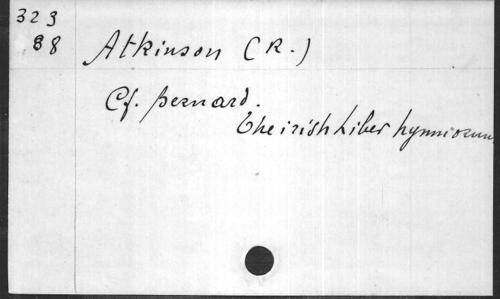 323
88
Atkinson (R.)
Cf. Bernard.
The irish Liber hymnorum